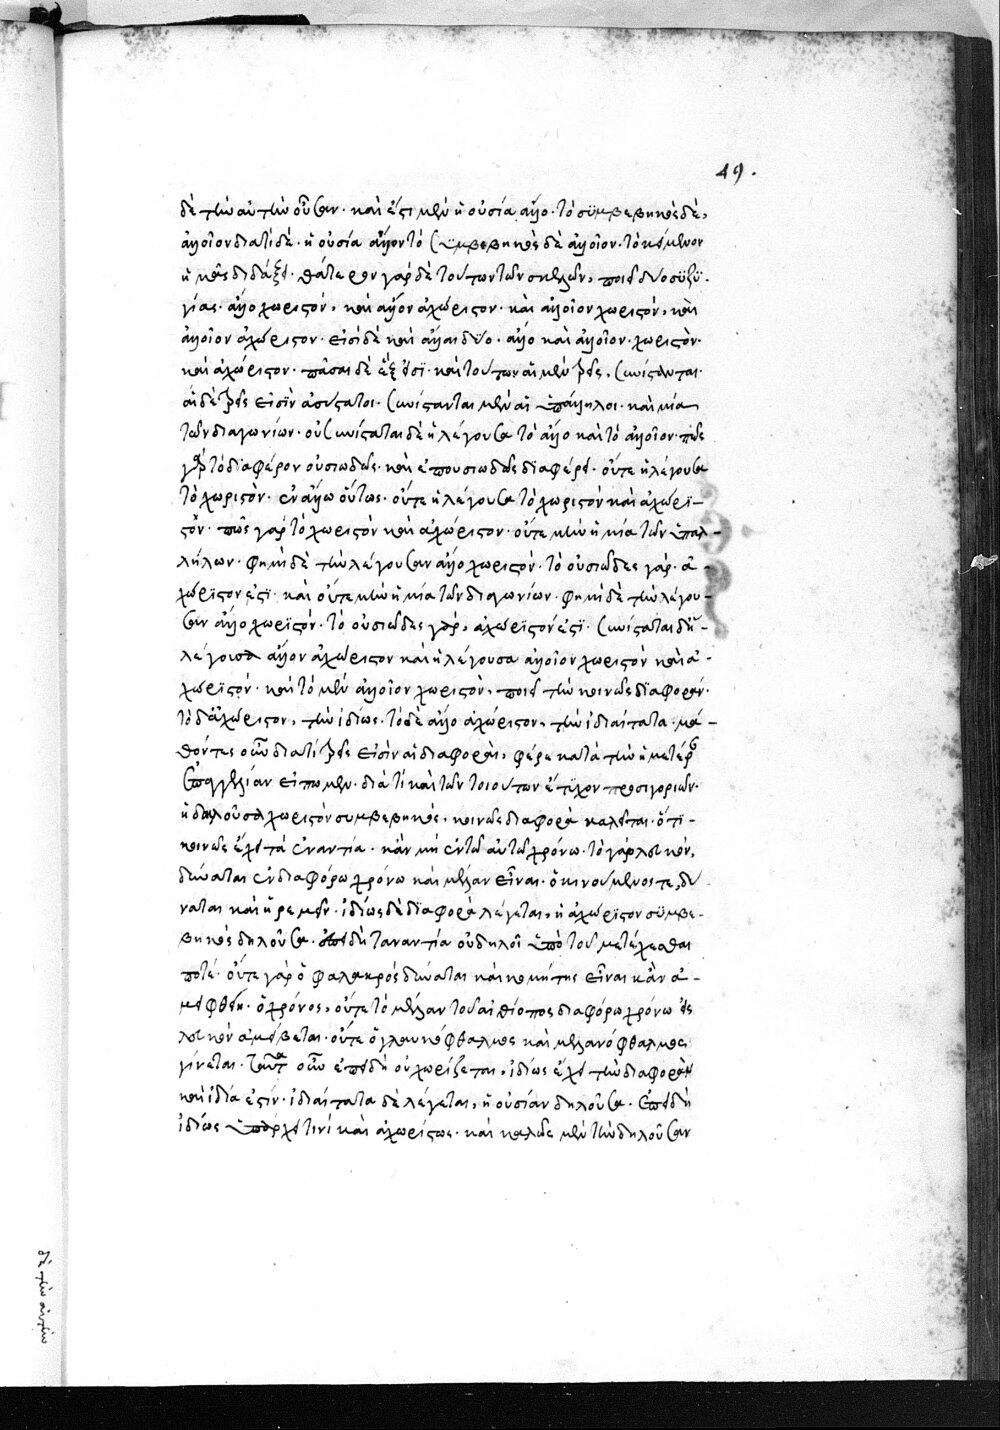 49.
δὲ τὴν αὐτὴν οὖσαν· καὶ ἔστι μὲν ἡ οὐσία ἄλλο· τὸ συμβεβηκὸς δὲ,
ἀλλοῖον διατί δὲ· ἡ οὐσία ἄλλον τὸ συμβεβηκὸς δὲ ἀλλοῖον· τὸ κείμενον
ἡμᾶς διδάξει· θάτερον γὰρ δὲ τούτων τῶν σκελῶν, ποιεῖ δύο συζϋ-
γίας· ἄλλο χωριστόν, καὶ ἄλλον ἀχώριστον· καὶ ἀλλοῖον χωριστόν, καὶ
ἀλλοῖον ἀχώριστον· εἰσὶ δὲ καὶ ἄλλαι δύο· ἄλλο καὶ ἀλλοῖον· χωριστὸν
καὶ ἀχώριστον· πᾶσαι δὲ ἓξ εἰσὶ· καὶ τούτων αἱ μὲν τρεῖς, συνίστανται·
αἱ δὲ τρεῖς εἰσὶν ἀσύστατοι· συνίστανται μὲν αἱ ὑπάλληλοι· καὶ μία
τῶν διαγωνίων· οὐ συνίσταται δὲ ἡ λέγουσα τὸ ἄλλο καὶ τὸ ἀλλοῖον· πῶς
γὰρ τὸ διαφέρον οὐσιωδῶς· καὶ ἐπουσιωδῶς διαφέρει· οὔτε ἡ λέγουσα
τὸ χωριστὸν· ἐν ἄλλω ὄντως· οὔτε ἡ λέγουσα τὸ χωριστὸν καὶ ἀχώρι-
στον· πῶς γὰρ τὸ χωριστὸν καὶ ἀχώριστον· οὔτε μὴν ἡ μία τῶν ὑπαλ-
λήλων· φημὶ δὲ τὴν λέγουσαν ἄλλο χωριστόν· τὸ οὐσιῶδες γάρ· ἀ-
χώριστον ἐστὶ· καὶ οὔτε μὴν ἡ μία τῶν διαγωνίων· φημὶ δὲ τὴν λέγου-
σαν ἄλλο χωριστόν· τὸ οὐσιῶδες γὰρ, ἀχώριστόν ἐστὶ· συνίσταται δὲ ἡ
λέγουσα ἄλλον ἀχώριστον καὶ ἡ λέγουσα ἀλλοῖον χωριστὸν καὶ ἀ-
χώριστόν· καὶ τὸ μὲν ἀλλοῖον χωριστὸν, ποιεῖ τὴν κοινῶς διαφοράν·
τὸ δ' ἀχώριστον, τὴν ἰδίως· τὸ δὲ ἄλλο ἀχώριστον, τὴν ἰδιαίτατα· μα-
θόντες οὖν διατί τρεῖς εἰσὶν αἱ διαφοραὶ, φέρε κατὰ τὴν ἡμετέραν
ἐπαγγελίαν εἴπωμεν· διὰ τί καὶ τῶν τοιούτων ἔτυχον προσηγοριῶν·
ἡ δηλοῦσα χωριστὸν συμβεβηκὸς, κοινῶς διαφορὰ καλεῖται· ὅτι
κοινῶς ἔχει τὰ ἐναντία· κἂν μὴ ἐν τῶ αὐτῶ χρόνω· τὸ γὰρ λευκὸν,
δύναται ἐν διαφόρω χρόνω καὶ μέλαν εἶναι· ὁ κινούμενος τε, δύ-
ναται καὶ ἠρεμεῖν· ἰδίως δὲ διαφορὰ λέγεται, ἡ ἀχώριστον συμβε-
βηκὸς δηλοῦσα· ἐπειδὴ τἀναντία οὐ δηλοῖ ὑπὸ τοῦ μετέχεσθαι
ποτέ· οὔτε γὰρ ὁ φαλακρὸς δύναται καὶ κομήτης εἶναι κἂν ἀ-
μειφθείη· ὁ χρόνος, οὔτε τὸ μέλαν τοῦ αἰθίοπος διαφόρω χρόνω εἰς
λευκὸν ἀμείβεται· οὔτε ὁ γλαυκόφθαλμος καὶ μελανόφθαλμος
γίνεται· ταῦτα οὖν ἐπειδὴ οὐ χωρίζεται, ἰδίως ἔχει τὴν διαφορὰν
καὶ ἰδία ἐστίν· ἰδιαίτατα δὲ λέγεται, ἡ οὐσίαν δηλοῦσα· ἐπειδὴ
ἰδίως ὑπάρχει τινὶ καὶ ἀχωρίστως· καὶ καλῶς μὲν τὴν δηλοῦσαν
δὲ τὴν αὐτὴν